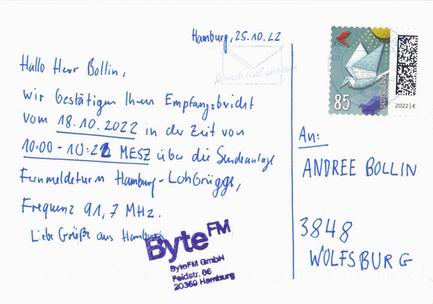 Hamburg, 25.10.22
Hallo Herr Bollin,
wir bestätigen Ihren Empfangsbricht
vom 18.10.2022 in der Zeit von
10:00 - 10:22 MESZ über die Sendeanlage
Funmeldeturm Hamburg-Lohbrügge,
Frequenz 91,7 MHz.
Liebe Grüße aus Hamburg
ByteFM
ByteFM GmbH
Feldstr. 66
20359 Hamburg
85
2022 | €
An:
ANDREE BOLLIN
3848
WOLFSBURG